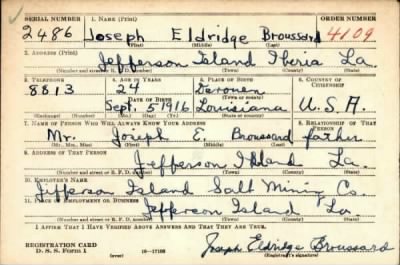 SERIAL NUMBER 1. NAME (Print) ORDER NUMBER
2486 Joseph Eldridge Broussard 4109
(First) (Middle) (Last)
2. ADDRESS (Print)
Jefferson Island Iberia La.
(Number and street or R. F. D. number) (Town) (County) (State)
3. TELEPHONE 4. AGE IN YEARS 5. PLACE OF BIRTH 6. COUNTRY OF CITIZENSHIP
8813 24
(Town or county)
DATE OF BIRTH
Sept. 5 1916 Louisiana U.S.A.
(Exchange) (Number) (Mo.) (Day) (Yr.) (State or country)
7. NAME OF PERSON WHO WILL ALWAYS KNOW YOUR ADDRESS 8. RELATIONSHIP OF THAT PERSON
Mr. Joseph E. Broussard father
(Mr., Mrs., Miss) (First) (Middle) (Last)
9. ADDRESS OF THAT PERSON
Jefferson Island La.
(Number and street or R. F. D. number) (Town) (County) (State)
10. EMPLOYER'S NAME
Jefferson Island Salt Mining Co.
11. PLACE OF EMPLOYMENT OR BUSINESS
Jefferson Island La.
(Number and street or R. F. D. number) (Town) (County) (State)
I AFFIRM THAT I HAVE VERIFIED ABOVE ANSWERS AND THAT THEY ARE TRUE.
REGISTRATION CARD
D. S. S. Form 1 (over) 16—17105 Joseph Eldridge Broussard
(Registrant's signature)